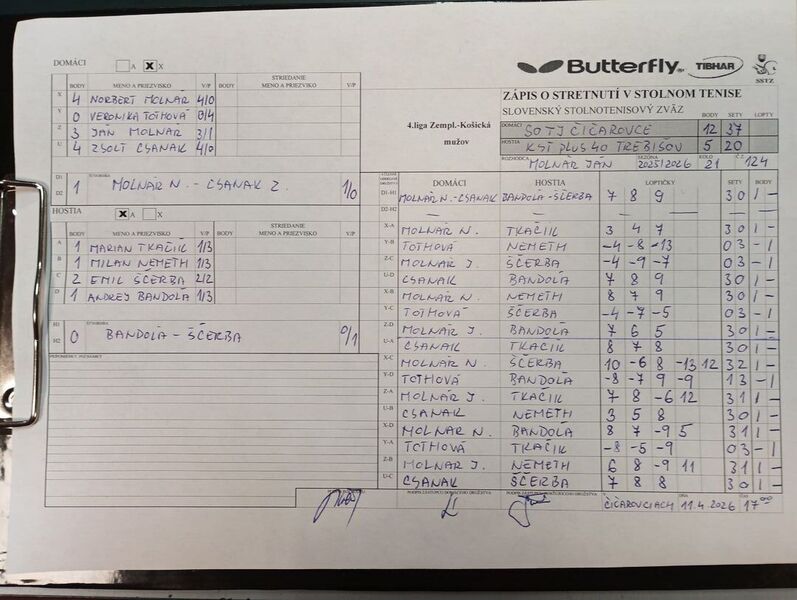 DOMÁCI A X X
Butterfly TIBHAR SSTZ
BODY MENO A PRIEZVISKO V/P BODY STRIEDANIE MENO A PRIEZVISKO V/P
X 4 NORBERT MOLNÁR 4/0
Y 0 VERONIKA TÓTHOVÁ 0/4
Z 3 JÁN MOLNÁR 3/1
U 4 ZSOLT CSANAK 4/0
D1 D2 ŠTVORHRA MOLNÁR N. - CSANAK Z. 1/0
HOSTIA X A X
BODY MENO A PRIEZVISKO V/P BODY STRIEDANIE MENO A PRIEZVISKO V/P
A 1 MARIAN TKÁČIK 1/3
B 1 MILAN NÉMETH 1/3
C 2 EMIL ŠČERBA 2/2
D 1 ANDREJ BANDOLA 1/3
H1 H2 ŠTVORHRA 0 BANDOLA - ŠČERBA 0/1
PRIPOMIENKY, POZNÁMKY
ZÁPIS O STRETNUTÍ V STOLNOM TENISE
SLOVENSKÝ STOLNOTENISOVÝ ZVÄZ BODY SETY LOPTY
4.liga Zempl.-Košická mužov
DOMÁCI SOTJ ČIČAROVCE 12 37
HOSTIA KST PLUS 40 TREBIŠOV 5 20
ROZHODCA MOLNÁR JÁN SEZÓNA 2025/2026 KOLO 21 Č.Z. 124
DOMÁCI HOSTIA LOPTIČKY SETY BODY
D1-H1 MOLNÁR N.-CSANAK BANDOLA-ŠČERBA 7 8 9 3 0 1 -
D2-H2 — — — — —
X-A MOLNÁR N. TKÁČIK 3 4 7 3 0 1 -
Y-B TÓTHOVÁ NÉMETH -4 -8 -13 0 3 - 1
Z-C MOLNÁR J. ŠČERBA -4 -9 -7 0 3 - 1
U-D CSANAK BANDOLA 7 8 9 3 0 1 -
X-B MOLNÁR N. NÉMETH 8 7 9 3 0 1 -
Y-C TÓTHOVÁ ŠČERBA -4 -7 -5 0 3 - 1
Z-D MOLNÁR J. BANDOLA 7 6 5 3 0 1 -
U-A CSANAK TKÁČIK 8 7 8 3 0 1 -
X-C MOLNÁR N. ŠČERBA 10 -6 8 -13 12 3 2 1 -
Y-D TÓTHOVÁ BANDOLA -8 -7 9 -9 1 3 - 1
Z-A MOLNÁR J. TKÁČIK 7 8 -6 12 3 1 1 -
U-B CSANAK NÉMETH 3 5 8 3 0 1 -
X-D MOLNÁR N. BANDOLA 8 7 -9 5 3 1 1 -
Y-A TÓTHOVÁ TKÁČIK -8 -5 -9 0 3 - 1
Z-B MOLNÁR J. NÉMETH 6 8 -9 11 3 1 1 -
U-C CSANAK ŠČERBA 7 8 8 3 0 1 -
PODPIS ZÁSTUPCU DOMÁCEHO DRUŽSTVA
ČIČAROVCIACH DŇA 11.4.2026 17⁰⁰